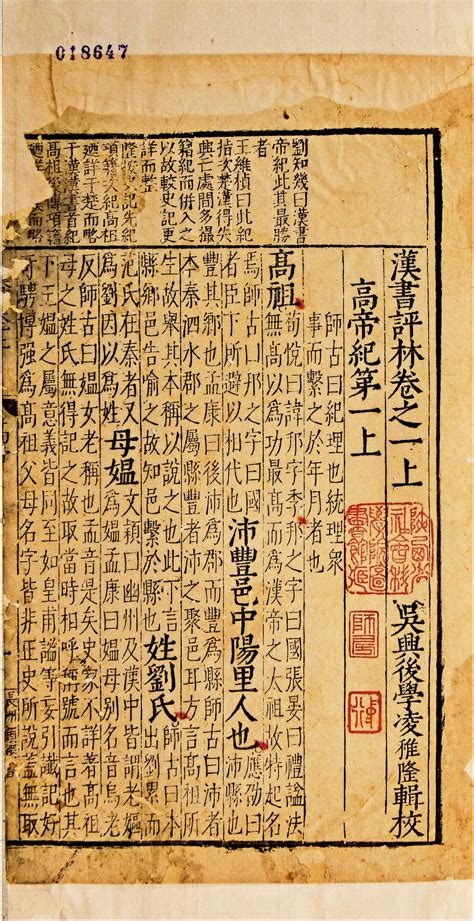 018647
劉知幾曰漢書
帝紀此其最勝
者
王維楨曰此紀
指次楚漢得失
興亡處間多撮
籍紀而併入之
以故較史記更
詳而整
隆按史記先紀
項籍次紀高祖
于漢漢書首紀
高祖傳項籍
廼詳于楚而略
漢書評林卷之一上 吳興後學凌稚隆輯校
高帝紀第一上
師古曰紀理也統理衆
事而繫之於年月者也
高祖
荀悅曰諱邦字季邦之字曰國張晏曰禮謚法
無高以爲功最高而爲漢帝之太祖故特起名
焉師古曰邦之字曰國
者臣下所避以相代也
沛豐邑中陽里人也
應劭曰沛縣也
豐其鄉也孟康曰後沛爲郡而豐爲縣師古曰沛者
本秦泗水郡之屬縣豐者沛之聚邑耳方言高祖所
生故舉其本稱以說之也此下言
縣鄉邑告喻之故知邑繫於縣也
姓劉氏
師古曰本
出劉累而
范氏在秦者又
爲劉因以爲姓
母媼
文穎曰幽州及漢中皆謂老嫗
爲媼孟康曰媼母別名音烏老
反師古曰媼女老稱也孟音是矣史家不詳著高祖
母之姓氏無得記之故取當時相呼稱號而言也其
下王媼之屬意義皆同至如皇甫謐等妄引讖記好
奇騁博強爲高祖父母名字皆非正史所說蓋無取